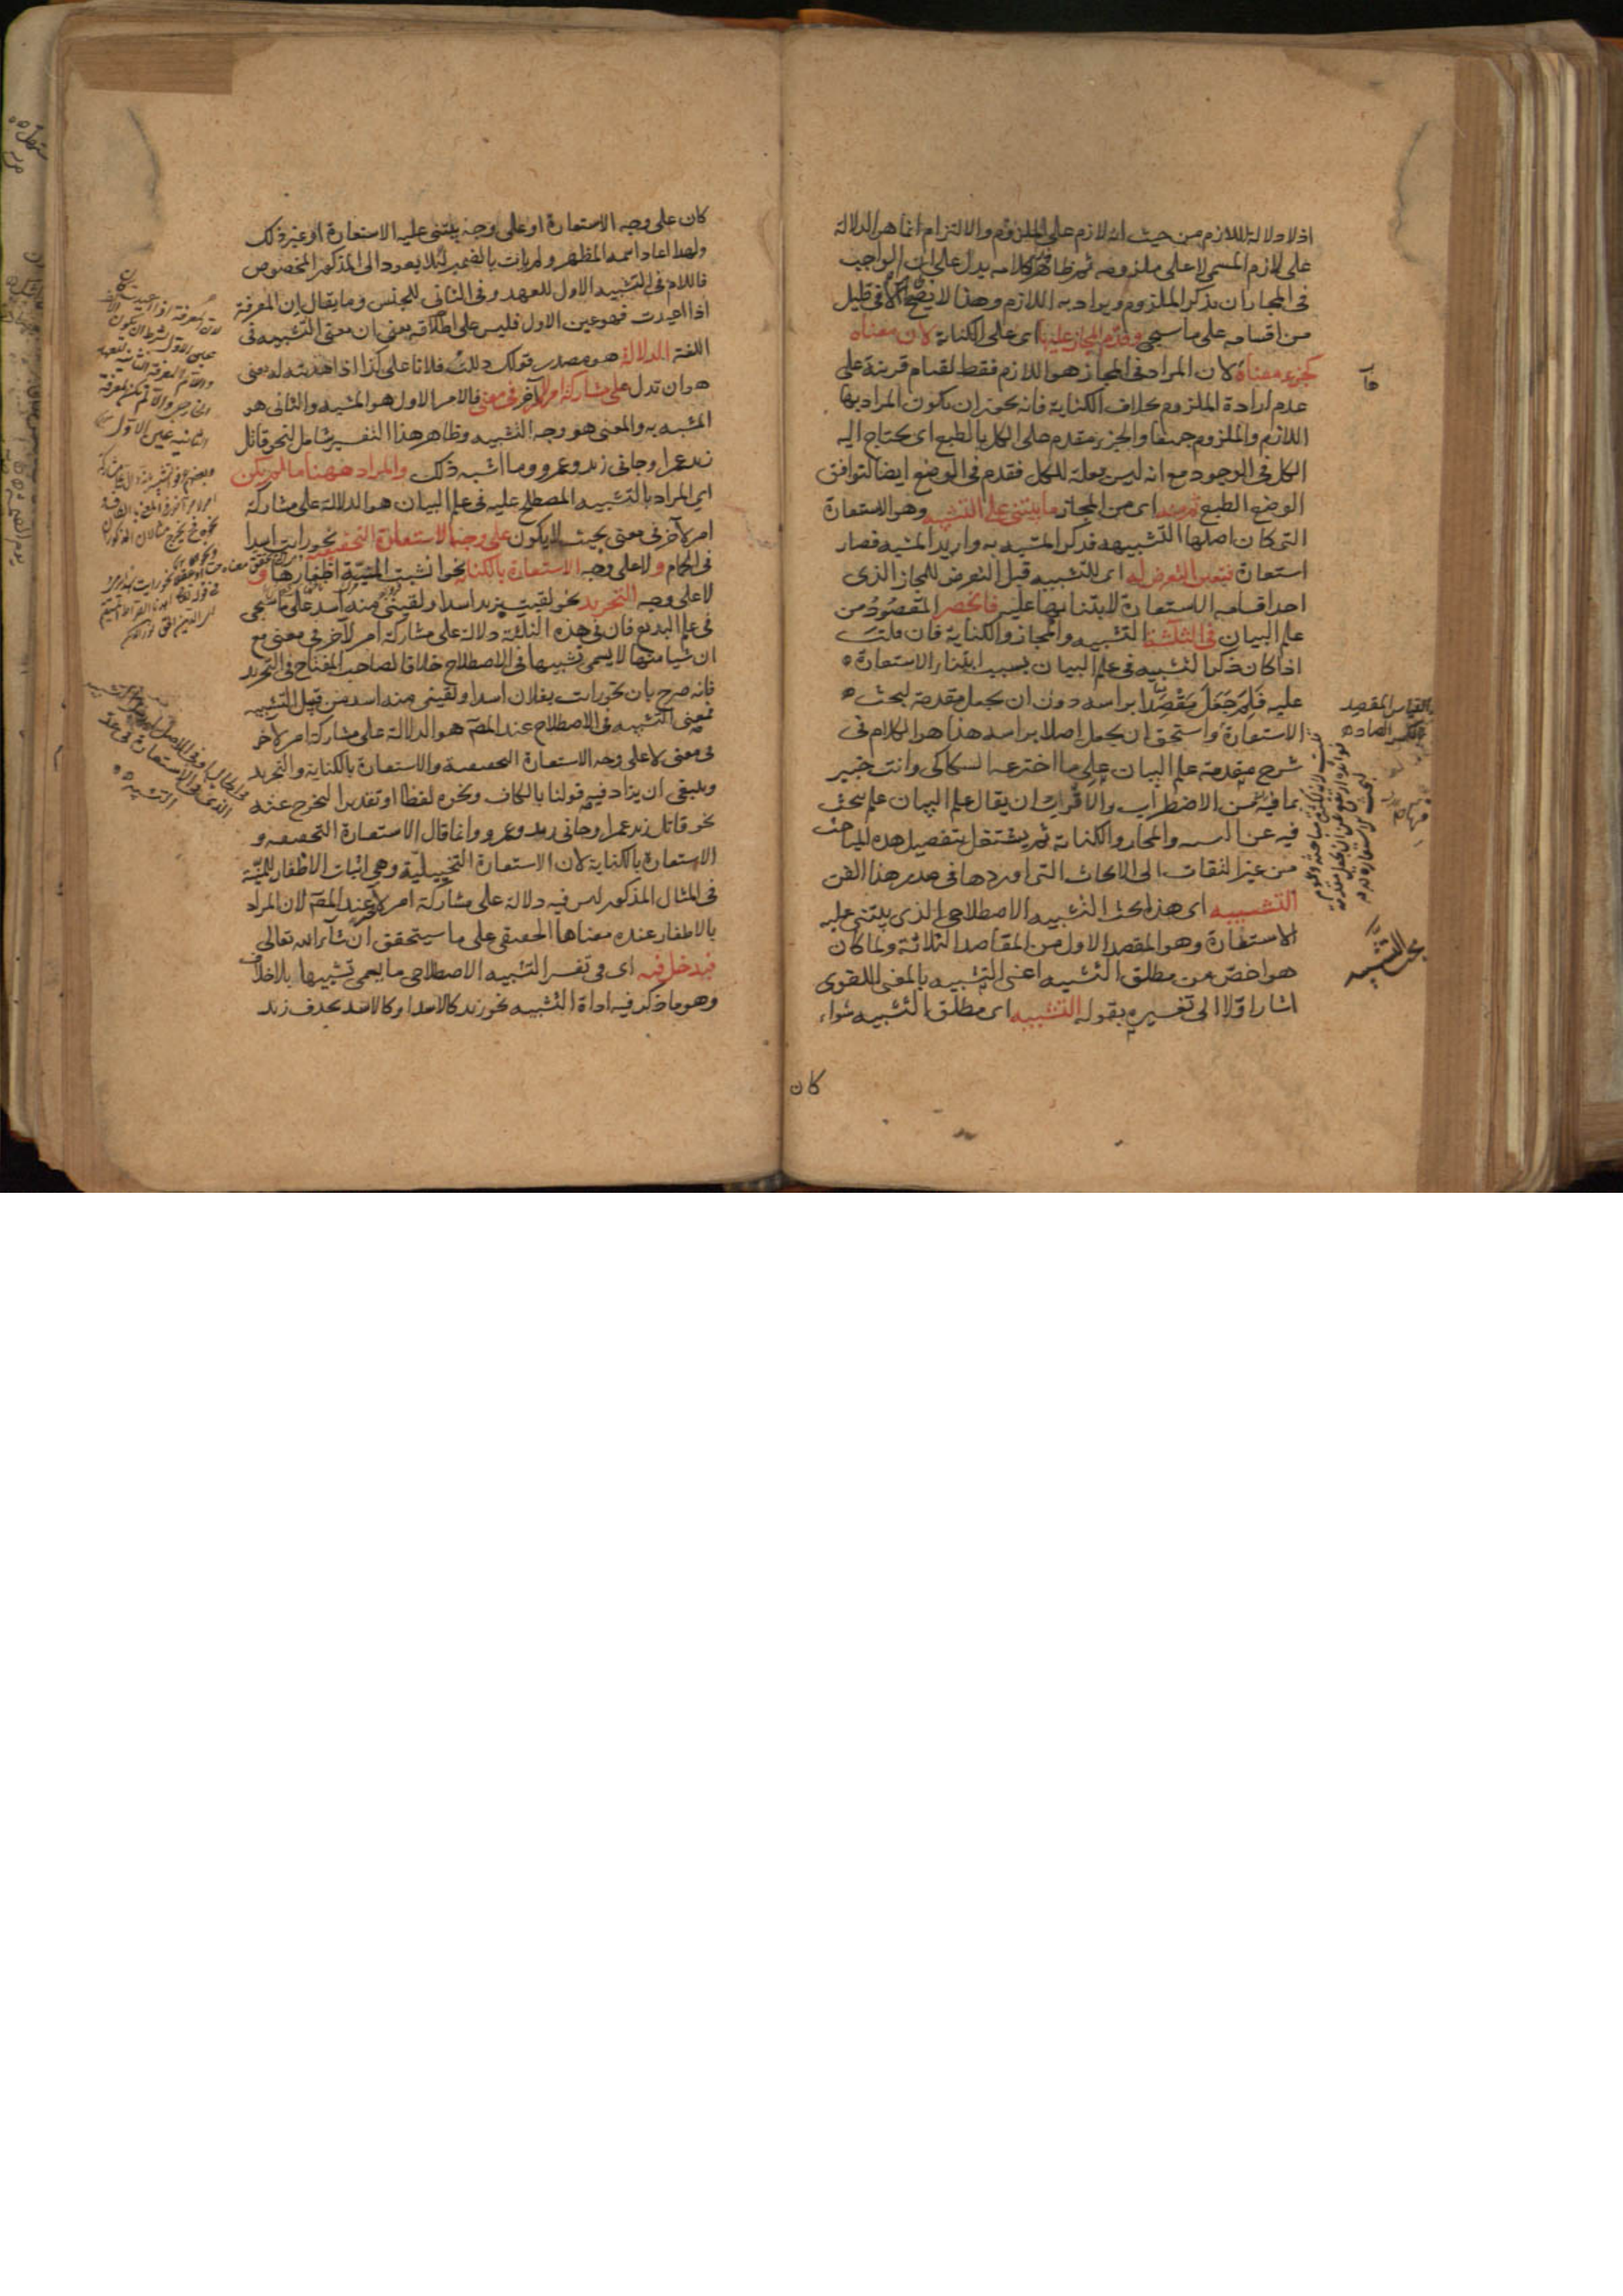 اذ لا دلالة للازم من حيث انه لازم على الملزوم والالتزام انما هو الدلالة
على لازم المسمى لا على ملزومه ثم ظاهر كلامه يدل على ان الواجب
فى المجاز ان يذكر الملزوم ويراد به اللازم وهذا لا يصح الا فى قليل
من اقسامه على ما سيجى وقدم المجاز عليها اى على الكناية لان معناه
كجزء معناها لان المراد فى المجاز هو اللازم فقط لقيام قرينة على
عدم ارادة الملزوم بخلاف الكناية فانه يجوز ان يكون المراد بها
اللازم والملزوم جميعا والجزء مقدم على الكل بالطبع اى يحتاج اليه
الكل فى الوجود مع انه ليس بعلة للكل فقدم فى الوضع ايضا لتوافق
الوضع الطبع ثم منه اى من المجاز ما يبتنى على التشبيه وهو الاستعارة
التى كان اصلها التشبيه فذكر المشبه به واريد المشبه فصار
استعارة فتعين التعرض له اى للتشبيه قبل التعرض للمجاز الذى
احد اقسامه الاستعارة لابتنائها عليه فانحصر المقصود من
علم البيان فى الثلثة التشبيه والمجاز والكناية فان قلت
اذا كان ذكر التشبيه فى علم البيان بسبب ابتناء الاستعارة
عليه فلم جعل مقصدا براسه دون ان يجعل مقدمة لبحث
الاستعارة واستحق ان يجعل اصلا براسه هذا هو الكلام فى
شرح مقدمة علم البيان على ما اخترعه السكاكى وانت خبير
بما فيه من الاضطراب والاقرب ان يقال علم البيان علم يبحث
فيه عن التشبيه والمجاز والكناية ثم يشتغل بتفصيل هذه المباحث
من غير التفات الى الابحاث التى اوردها فى صدر هذا الفن
التشبيه اى هذا بحث التشبيه الاصطلاحى الذى يبتنى عليه
الاستعارة وهو المقصد الاول من المقاصد الثلاثة ولما كان
هو اخص من مطلق التشبيه اعنى التشبيه بالمعنى اللغوى
اشار اولا الى تفسيره بقوله التشبيه اى مطلق التشبيه سواء
كان
بحث التشبيه
كان على وجه الاستعارة او على وجه يبتنى عليه الاستعارة او غير ذلك
ولهذا اعاد اسمه المظهر ولم يات بالضمير لئلا يعود الى المذكور المخصوص
فاللام فى التشبيه الاول للعهد وفى الثانى للجنس وما يقال ان المعرفة
اذا اعيدت فهو عين الاول فليس على اطلاقه يعنى ان معنى التشبيه فى
اللغة الدلالة هو مصدر قولك دللت فلانا على كذا اذا هديته له يعنى
هو ان تدل على مشاركة امر لآخر فى معنى فالامر الاول هو المشبه والثانى هو
المشبه به والمعنى هو وجه التشبيه وظاهر هذا التفسير شامل لنحو قاتل
زيد عمرا وجانى زيد وعمرو وما اشبه ذلك والمراد ههنا ما لم يكن
اى المراد بالتشبيه المصطلح عليه فى علم البيان هو الدلالة على مشاركة
امر لآخر فى معنى بحيث لا يكون على وجه الاستعارة التحقيقية نحو رايت اسدا
فى الحمام ولا على وجه الاستعارة بالكناية نحو انشبت المنية اظفارها و
لا على وجه التجريد نحو لقيت بزيد اسدا ولقينى منه اسد على ما سيجى
فى علم البديع فان فى هذه الثلثة دلالة على مشاركة امر لآخر فى معنى مع
ان شيا منها لا يسمى تشبيها فى الاصطلاح خلافا لصاحب المفتاح فى التجريد
فانه صرح بان نحو رايت بفلان اسدا ولقينى منه اسد من قبيل التشبيه
فمعنى التشبيه فى الاصطلاح عند المص هو الدلالة على مشاركة امر لآخر
فى معنى لا على وجه الاستعارة التحقيقية والاستعارة بالكناية والتجريد
وينبغى ان يزاد فيه قولنا بالكاف ونحوه لفظا او تقديرا ليخرج عنه
نحو قاتل زيد عمرا وجانى زيد وعمرو وانما قال الاستعارة التحقيقية و
الاستعارة بالكناية لان الاستعارة التخييلية وهى اثبات الاظفار للمنية
فى المثال المذكور ليس فيه دلالة على مشاركة امر لآخر عند المص لان المراد
بالاظفار عنده معناها الحقيقى على ما سيتحقق ان شاء الله تعالى
فيدخل فيه اى فى تفسير التشبيه الاصطلاحى ما يسمى تشبيها بلا خلاف
وهو ما ذكر فيه اداة التشبيه نحو زيد كالاسد او كالاسد بحذف زيد